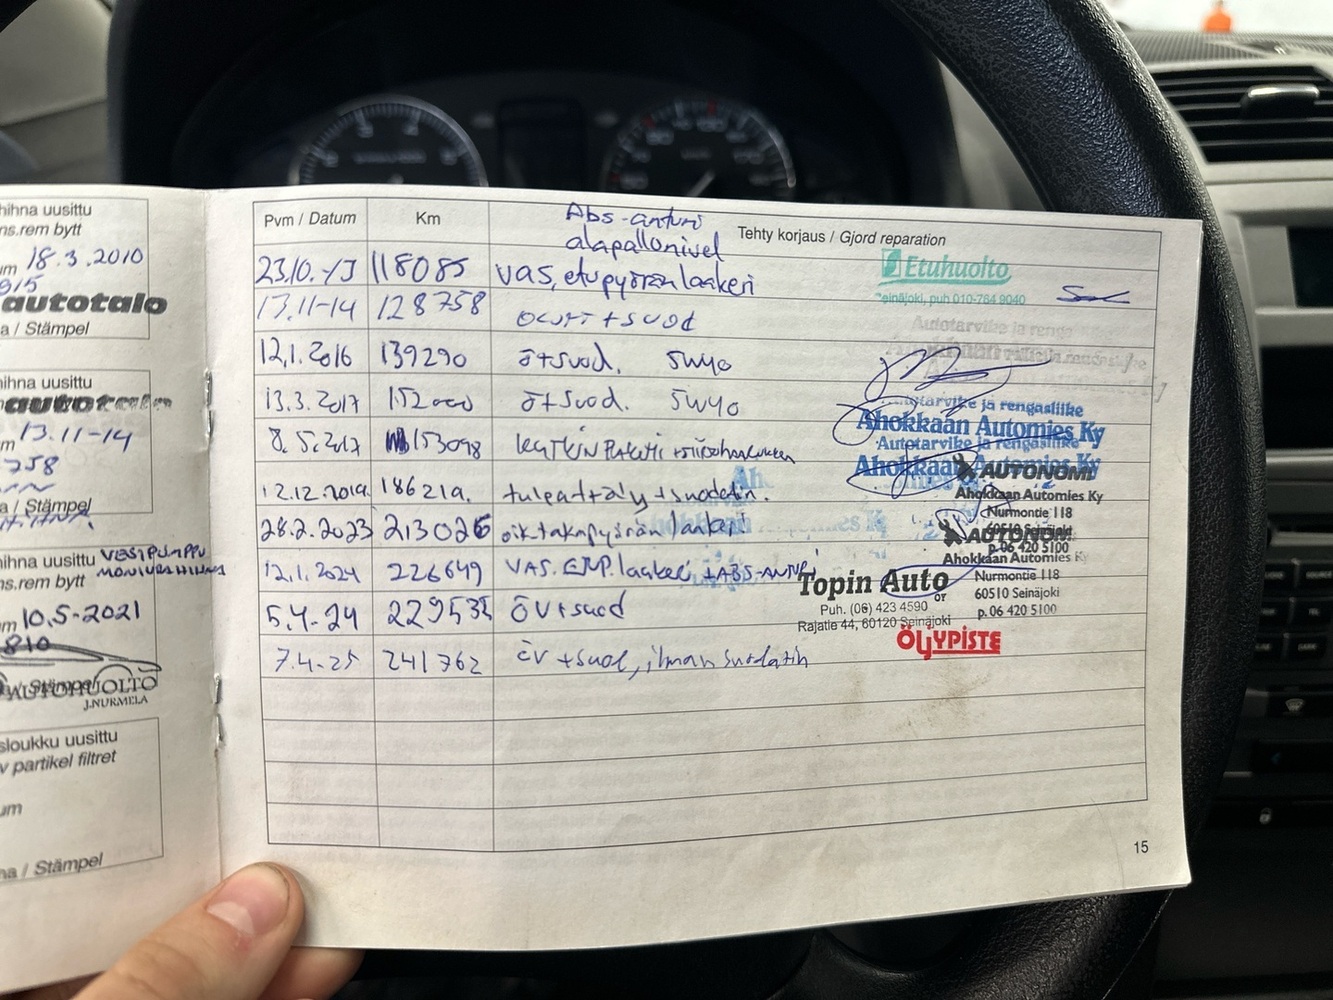 hihna uusittu
ns.rem bytt
m 18.3.2010
915
autotalo
a / Stämpel
hihna uusittu
ns.rem bytt
autotalo
m 13.11-14
758
a / Stämpel
hihna uusittu VESIPUMPPU
ns.rem bytt MONIURAHIHNA
m 10.5-2021
810
Stämpel
AUTOHUOLTO
J.NURMELA
sloukku uusittu
v partikel filtret
um
na / Stämpel
Pvm / Datum Km Tehty korjaus / Gjord reparation
Abs-anturi
alapallonivel
23.10.-13 118085 vas, etupyörän laakeri
Etuhuolto
Seinäjoki, puh 010-764 9040
13.11-14 128758 + suod
Autotarvike ja renga
12.1.2016 139290 ö+suod. 5w40
13.3.2017 152000 ö+suod. 5w40
Autotarvike ja rengasliike
Ahokkaan Automies Ky
8.5.2017 153098
Autotarvike ja rengasliike
Ahokkaan Automies Ky
12.12.2019. 186219.
AUTONOMI
Ahokkaan Automies Ky
Nurmontie 118
60510 Seinäjoki
p.06 420 5100
28.2.2023 213026 oik.takapyörän laakeri
AUTONOMI
Ahokkaan Automies Ky
Nurmontie 118
60510 Seinäjoki
p.06 420 5100
12.1.2024 226649 VAS. ETUP. laakeri +ABS-ANTURI
5.4-24 229532 öv+suod
Topin Auto oy
Puh. (06) 423 4590
Rajatie 44, 60120 Seinäjoki
7.4-25 241762 öv +suod, ilman suodatin
ÖLJYPISTE
15